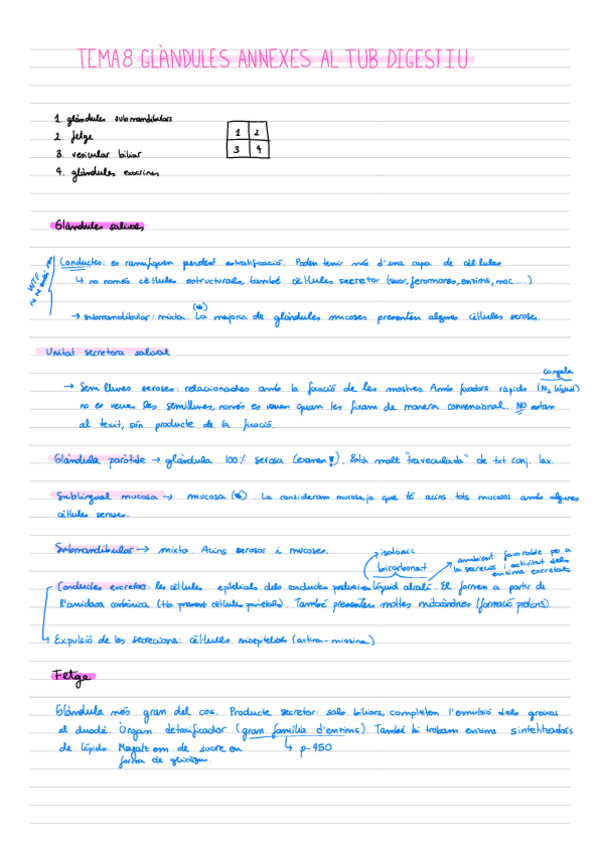 TEMA 8 GLÀNDULES ANNEXES AL TUB DIGESTIU
1. glàndules submandibulars
2. fetge
3. vesicular biliar
4. glàndules exocrines
1 2
3 4
Glàndules salivals
Conductes: es ramifiquen perdent estratificació. Poden tenir més d'una capa de cèl·lules.
WTF
↳ no només cèl·lules estructurals, també cèl·lules secretor (suor, feromones, enzims, moc...)
(*)
→ submandibular: mixta. La majoria de glàndules mucoses presenten algunes cèl·lules seroses.
Unitat secretora salival
congela
→ Semillunes seroses: relacionades amb la fixació de les mostres. Amb fixadors ràpids (N2 líquid)
no es veuen les semillunes, només es veuen quan les fixam de manera convencional. NO estan
al teixit, són producte de la fixació.
Glàndula paròtide → glàndula 100% serosa (examen!!). Està molt "traveculada" de txt conj. lax.
Sublingual mucosa → mucosa (*). La consideram mucosa ja que té acins tots mucosos amb algunes
cèl·lules seroses.
Submandibular → mixta. Acins serosos i mucoses.
→ isotònic
bicarbonat
ambient favorable per a
la secreció i activitat dels
enzims excretats
Conductes excretors: les cèl·lules epitelials dels conductes produeixen líquid alcalí. El formen a partir de
l'anidasa carbònica (tb present cèl·lules parietals). També presenten moltes mitocòndries (formació protons).
↳ Expulsió de les secrecions: cèl·lules mioepitelials (actina-miosina)
Fetge
Glàndula més gran del cos. Producte secretor: sals biliars, completen l'emulsió dels greixos
al duodè. Òrgan detoxificador (gran família d'enzims) També hi trobam enzims sintetitzadors
↳ p-450
de lípids. Magatzem de sucre en
forma de glicogen.